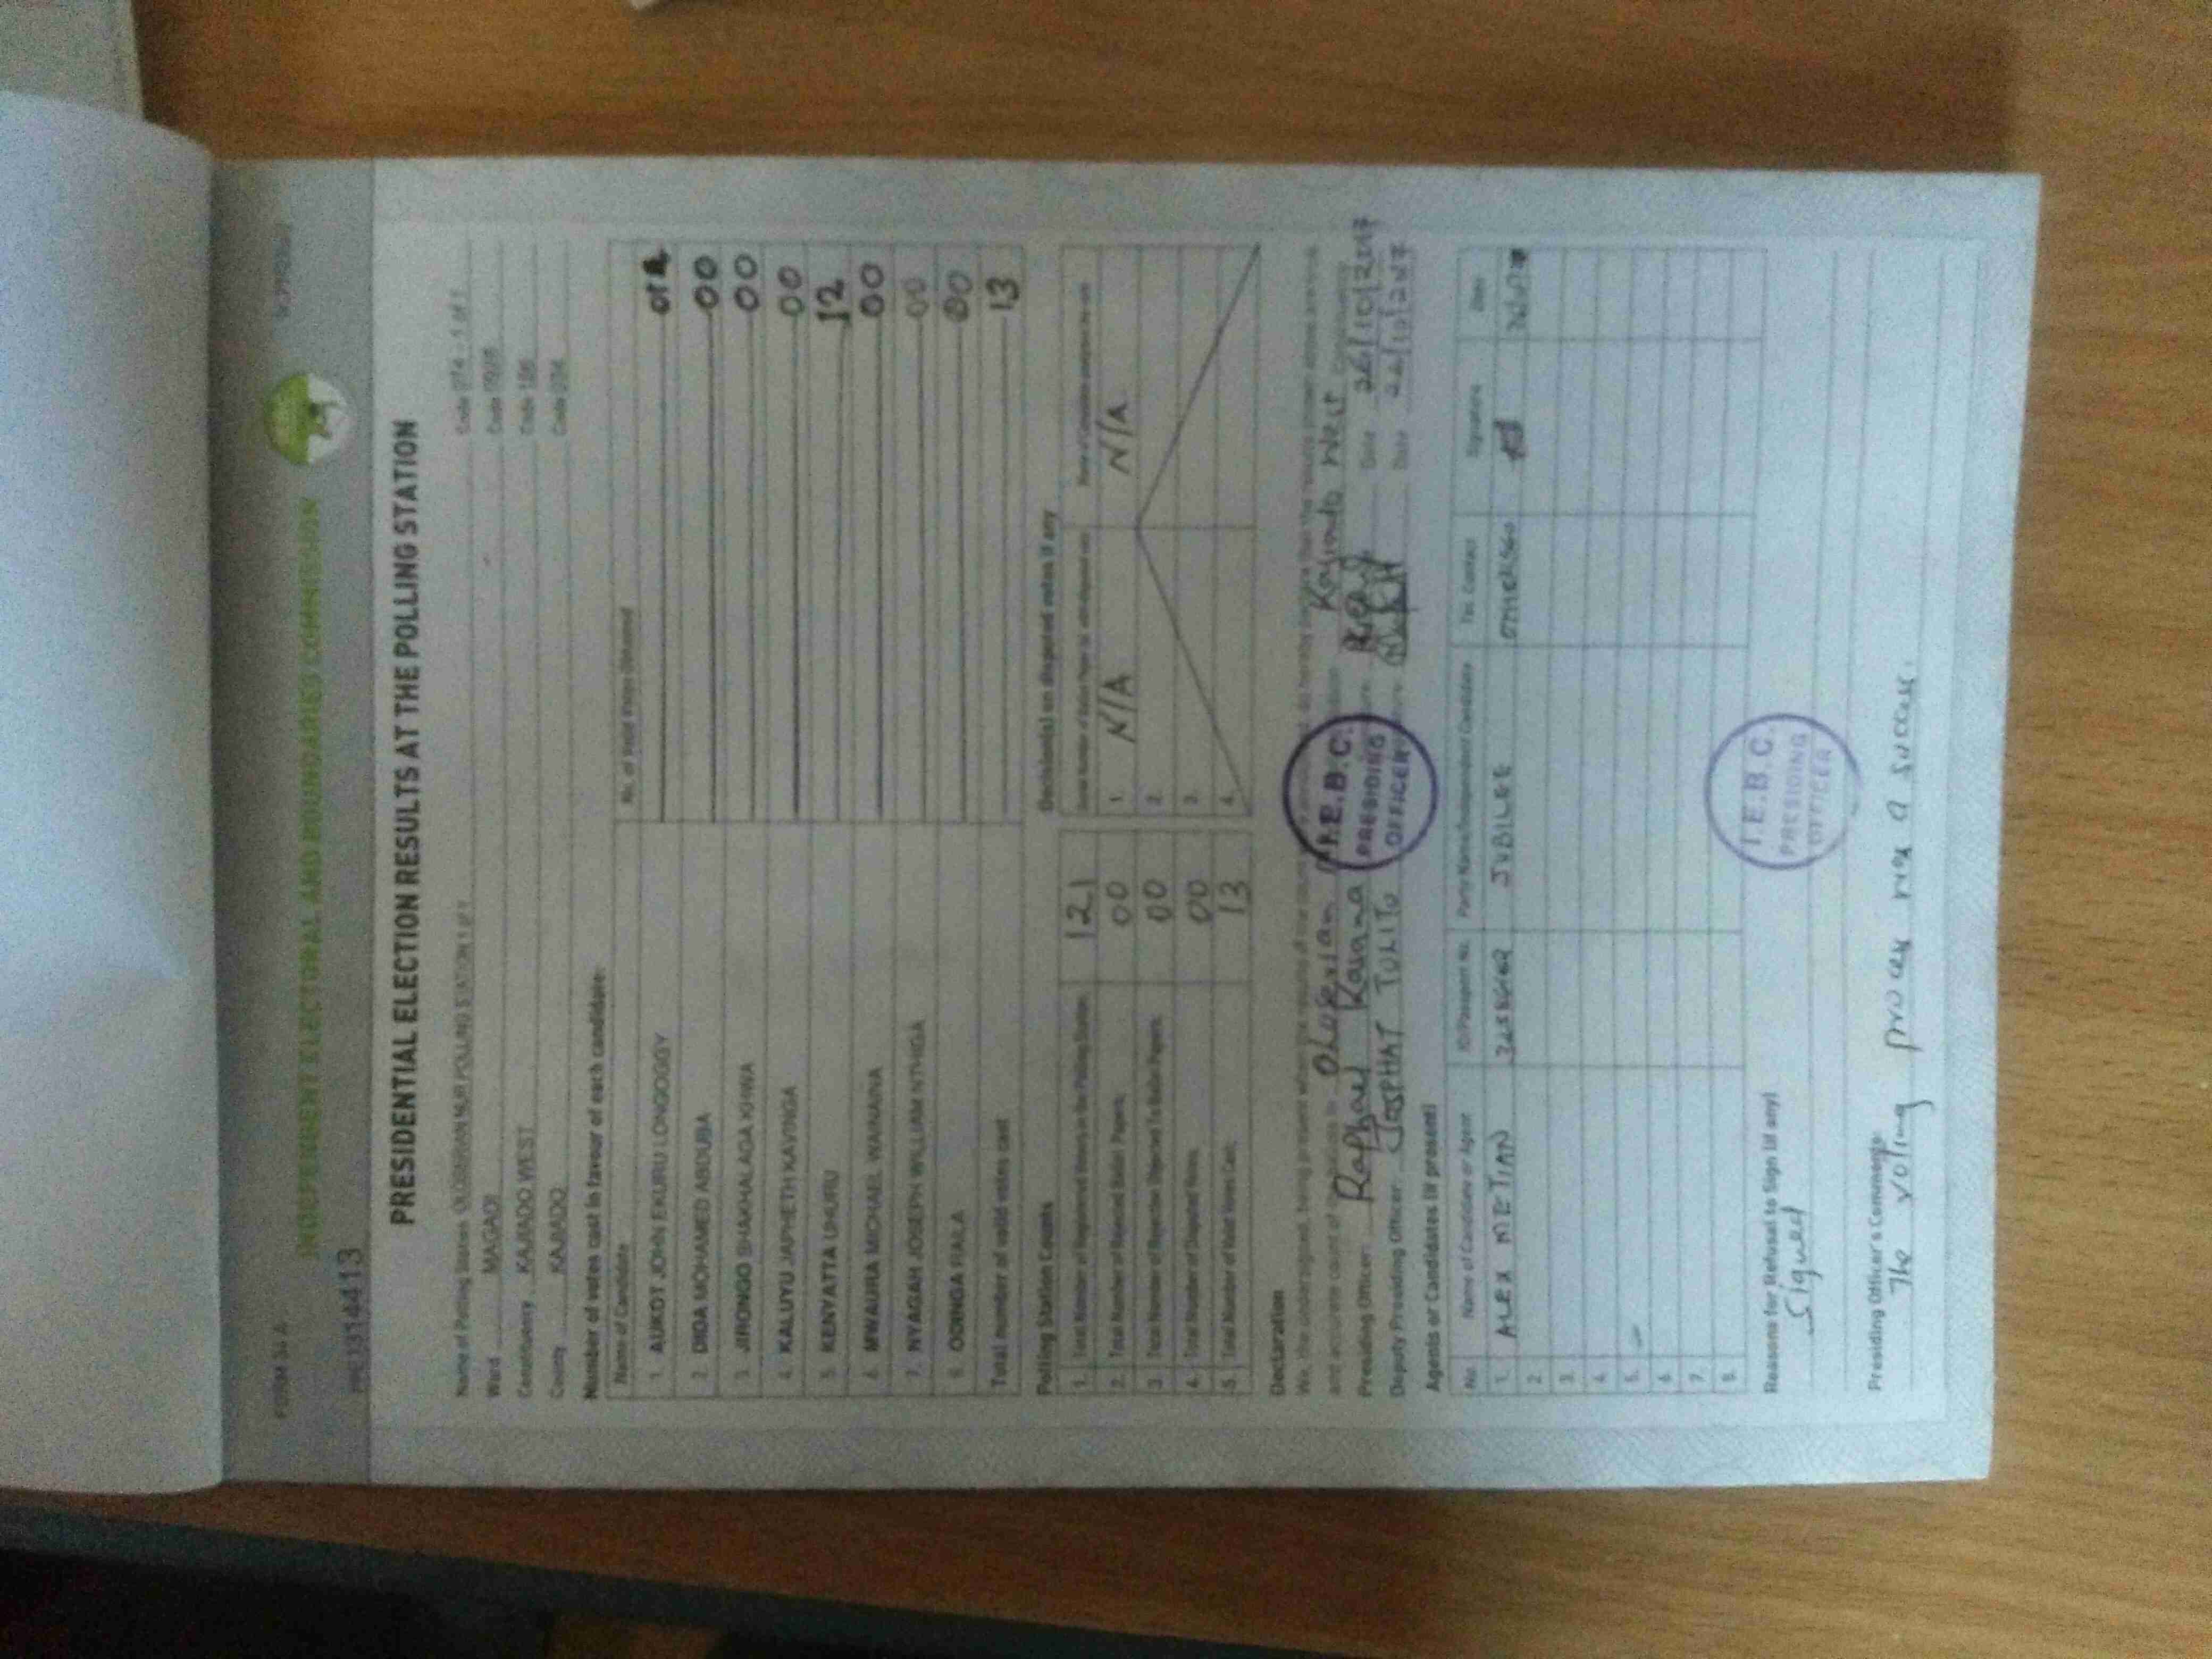 FORM 34 A
INDEPENDENT ELECTORAL AND BOUNDARIES COMMISSION
PRE3314413
PRESIDENTIAL ELECTION RESULTS AT THE POLLING STATION
Name of Polling Station POLLING STATION 1 of 1 Code 074 - 1 of 1
Ward MAGADI Code
Constituency KAJIADO WEST Code 186
County KAJIADO Code 034
Number of votes cast in favour of each candidate:
Name of Candidate No. of Valid Votes Obtained
1. AUKOT JOHN EKURU LONGOGGY
2. DIDA MOHAMED ABDUBA 00
3. JIRONGO SHAKHALAGA KHWA 00
4. KALUYU JAPHETH KAVINGA 00
5. KENYATTA UHURU 12
6. MWAURA MICHAEL WAINAINA 00
7. NYAGAH JOSEPH WILLIAM NTHIGA 00
8. ODINGA RAILA 00
Total number of valid votes cast 13
Polling Station Counts Decision(s) on disputed votes if any
1. Total Number of Registered Voters in the Polling Station 121
2. Total Number of Rejected Ballot Papers 00
3. Total Number of Rejection Objected To Ballot Papers 00
4. Total Number of Disputed Votes 00
5. Total Number of Valid Votes Cast 13
1. N/A N/A
2.
3.
4.
Declaration
We, the undersigned, being present when the results of the count
Kajiado West Constituency
Presiding Officer Raphael Date 26/10/2017
Deputy Presiding Officer JOSPHAT Date 26/10/2017
I.E.B.C. PRESIDING OFFICER
Agents or Candidates (if present)
No. Name of Candidate or Agent ID/Passport No. Party Name/Independent Candidate Tel. Contact Signature Date
1. ALEX METIAN JUBILEE
2.
3.
4.
5.
6.
7.
8.
Reasons for Refusal to Sign (if any)
Signed
I.E.B.C. PRESIDING OFFICER
Presiding Officer's Comments:
The voting process was a success.